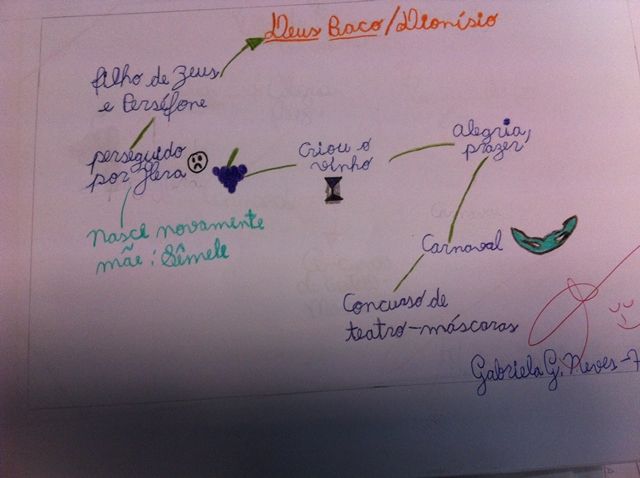 Deus Baco/Dionísio
filho de Zeus
e Perséfone
perseguido
por Hera
Nasce novamente
mãe: Sêmele
Criou o
vinho
alegria,
prazer
Carnaval
Concurso de
teatro-máscaras
Gabriela G. Neves-7